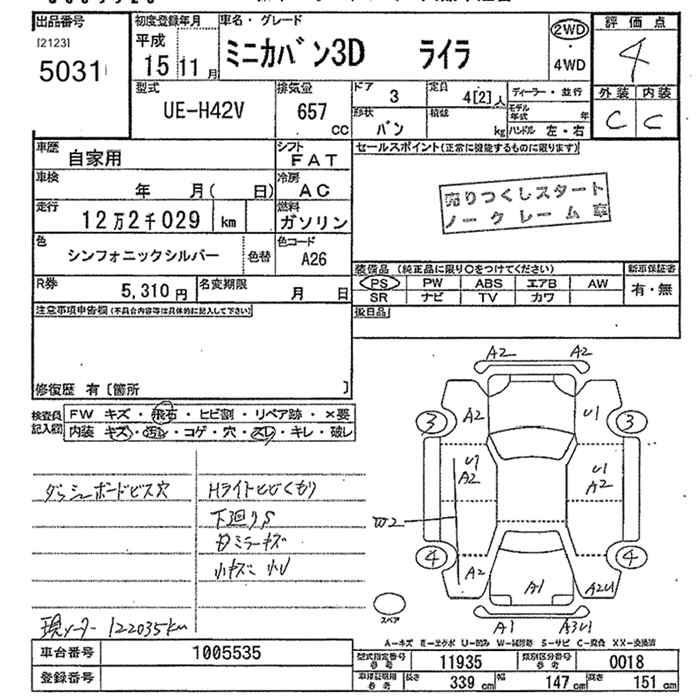 出品番号
[2123]
5031
初度登録年月
平成
15年 11月
車名・グレード
ミニカバン3D ライラ
2WD
・
4WD
評価点
4
外装 内装
C C
型式
UE-H42V
排気量
657
CC
ドア 3
定員 4[2]人
ディーラー・並行
形状 バン
積載 kg
モデル年式 年
ハンドル 左・右
車歴 自家用
シフト FAT
車検 年 月( 日)
冷房 AC
走行 12万2千029 km
燃料 ガソリン
色 シンフォニックシルバー 色替
色コード A26
R券 5,310円
名変期限 月 日
セールスポイント(正常に機能するものに限ります)
売りつくしスタート
ノークレーム車
装備品 (純正品に限り○をつけてください)
PS PW ABS エアB AW
SR ナビ TV カワ
新車保証書
有・無
後日品
注意事項申告欄(不具合内容等は具体的に記入して下さい)
修復歴 有〔箇所 〕
検査員記入欄
FW キズ・飛石・ヒビ割・リペア跡・×要
内装 キズ・汚れ・コゲ・穴・スレ・キレ・破レ
ダッシュボードビス穴
Hライトヒビくもり
下廻りS
ミラーキズ
小キズ 小U
現メーター 122035km
A2 A2
A2 U1
3 3
U1 A2
U1 A2
W2
4 4
A2 A1 A2U1
スペア
A1 A3U1
A-キズ E-エクボ U-凹み W-補修跡 S-サビ C-腐食 XX-交換済
車台番号 1005535
登録番号
型式指定番号 参考 11935
類別区分番号 参考 0018
車検証参考 長さ 339cm 幅 147cm 高さ 151cm